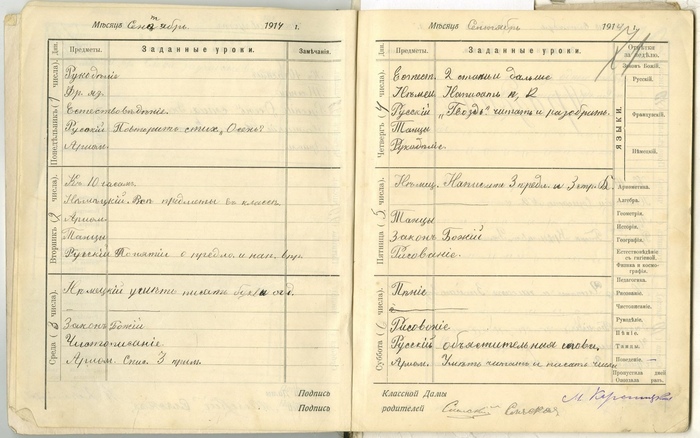 Мѣсяцъ Сентябрь 1914 г.
Дни. Предметы. Заданные уроки. Замѣчанія.
Понедѣльникъ (1 числа).
Рукодѣліе
Фр. яз.
Естествовѣдѣніе.
Русскій Повторить стих. „Осень"
Ариѳм.
Вторникъ (2 числа).
Къ 10 часамъ
Нѣмецкій. Всѣ предметы въ классѣ
Ариѳм.
Танцы
Русскій Понятіе о предлож. и нап.
Среда (3 числа).
Нѣмецкій умѣть писать буквы
Законъ Божій
Чистописаніе
Ариѳм. Спис. 3 прим.
Подпись
Подпись
Мѣсяцъ Сентябрь 191 г.
Дни. Предметы. Заданные уроки. Отмѣтки за недѣлю.
Четвергъ (4 числа).
Естест. 2 стран. дальше
Нѣмец. Написать
Русскій „Гвоздь" читать и разобрать.
Танцы
Рукодѣл.
Пятница (5 числа).
Нѣмец. Написать 3 предл. и 3 стр.
Танцы
Законъ Божій
Рисованіе.
Суббота (6 числа).
Пѣніе
Рисованіе
Русскій объяснительныя слова.
Ариѳм. Умѣть читать и писать числа
Законъ Божій.
ЯЗЫКИ.
Русскій.
Французскій.
Нѣмецкій.
Ариѳметика.
Алгебра.
Геометрія.
Исторія.
Географія.
Естествовѣдѣніе съ гигіеной.
Физика и космографія.
Педагогика.
Рисованіе.
Чистописаніе.
Рукодѣліе.
Пѣніе.
Танцы.
Поведеніе. —
Пропустила дней
Опоздала разъ.
Классной Дамы
родителей